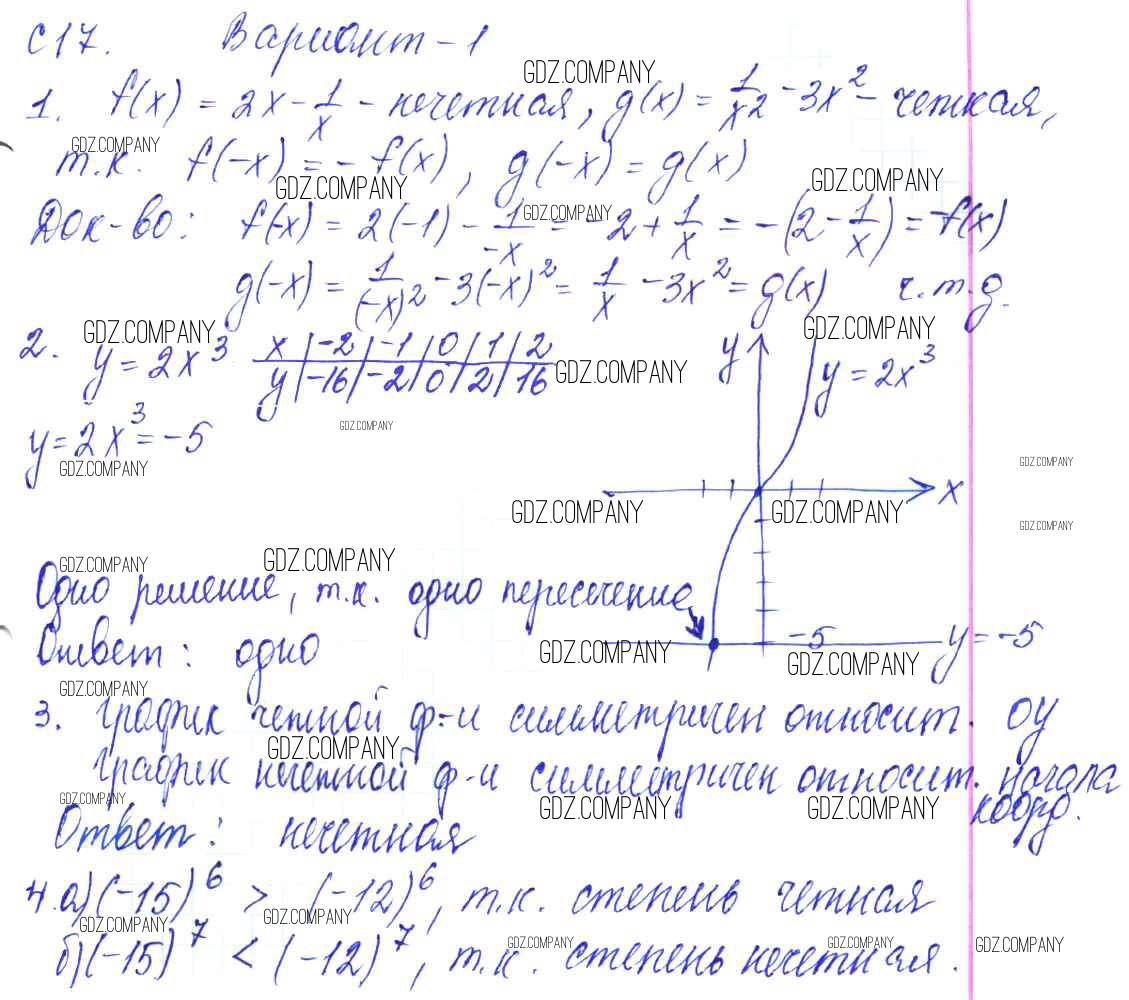 С17. Вариант - 1
GDZ.COMPANY
1. f(x) = 2x - 1/x - нечетная, g(x) = 1/x² - 3x² - четная,
GDZ.COMPANY
т.к. f(-x) = - f(x), g(-x) = g(x)
GDZ.COMPANY GDZ.COMPANY
GDZ.COMPANY
Док-во: f(-x) = 2(-1) - 1/-x = -2 + 1/x = -(2 - 1/x) = -f(x)
g(-x) = 1/(-x)² - 3(-x)² = 1/x - 3x² = g(x) ч.т.д.
GDZ.COMPANY GDZ.COMPANY
2. y = 2x³ x | -2 | -1 | 0 | 1 | 2
y | -16 | -2 | 0 | 2 | 16
GDZ.COMPANY
y y = 2x³
GDZ.COMPANY
y = 2x³ = -5
GDZ.COMPANY GDZ.COMPANY
x
GDZ.COMPANY GDZ.COMPANY GDZ.COMPANY
GDZ.COMPANY GDZ.COMPANY
Одно решение, т.к. одно пересечение
-5 y = -5
Ответ: одно
GDZ.COMPANY GDZ.COMPANY
GDZ.COMPANY
3. График четной ф-и симметричен относит. ОУ
GDZ.COMPANY
График нечетной ф-и симметричен относит. начала
коорд.
GDZ.COMPANY GDZ.COMPANY GDZ.COMPANY
Ответ: нечетная
4. а) (-15)⁶ > (-12)⁶, т.к. степень четная
GDZ.COMPANY GDZ.COMPANY
б) (-15)⁷ < (-12)⁷, т.к. степень нечетная.
GDZ.COMPANY GDZ.COMPANY GDZ.COMPANY